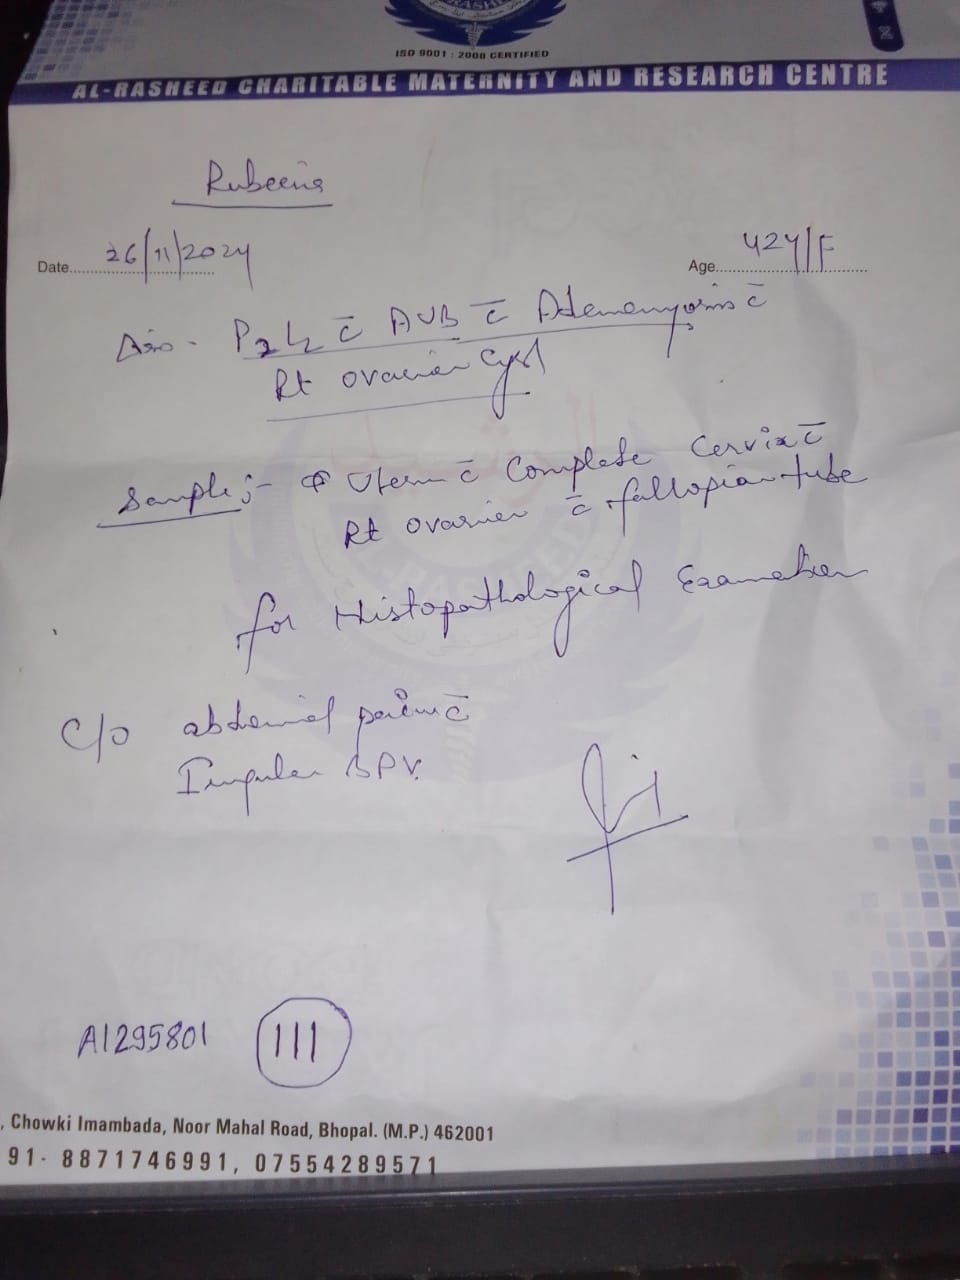 ISO 9001 : 2008 CERTIFIED
AL-RASHEED CHARITABLE MATERNITY AND RESEARCH CENTRE
Rubeena
Date 26/11/2024
Age 42Y/F
P2L2 c̄ AUB c̄ Adenomyosis c̄
Rt ovarian cyst
Sample :- Uterus c̄ Complete Cervix c̄
Rt ovarian c̄ fallopian tube
for Histopathological Examination
C/o abdominal pain c̄
Irregular BPV.
A1295801 III
, Chowki Imambada, Noor Mahal Road, Bhopal. (M.P.) 462001
91- 8871746991, 07554289571